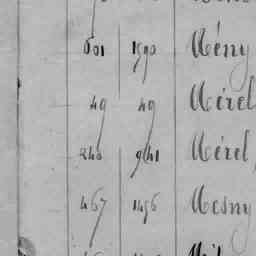 601 1590 Mény
49 49 Mérel
240 941 Mérel
467 1496 Mesny